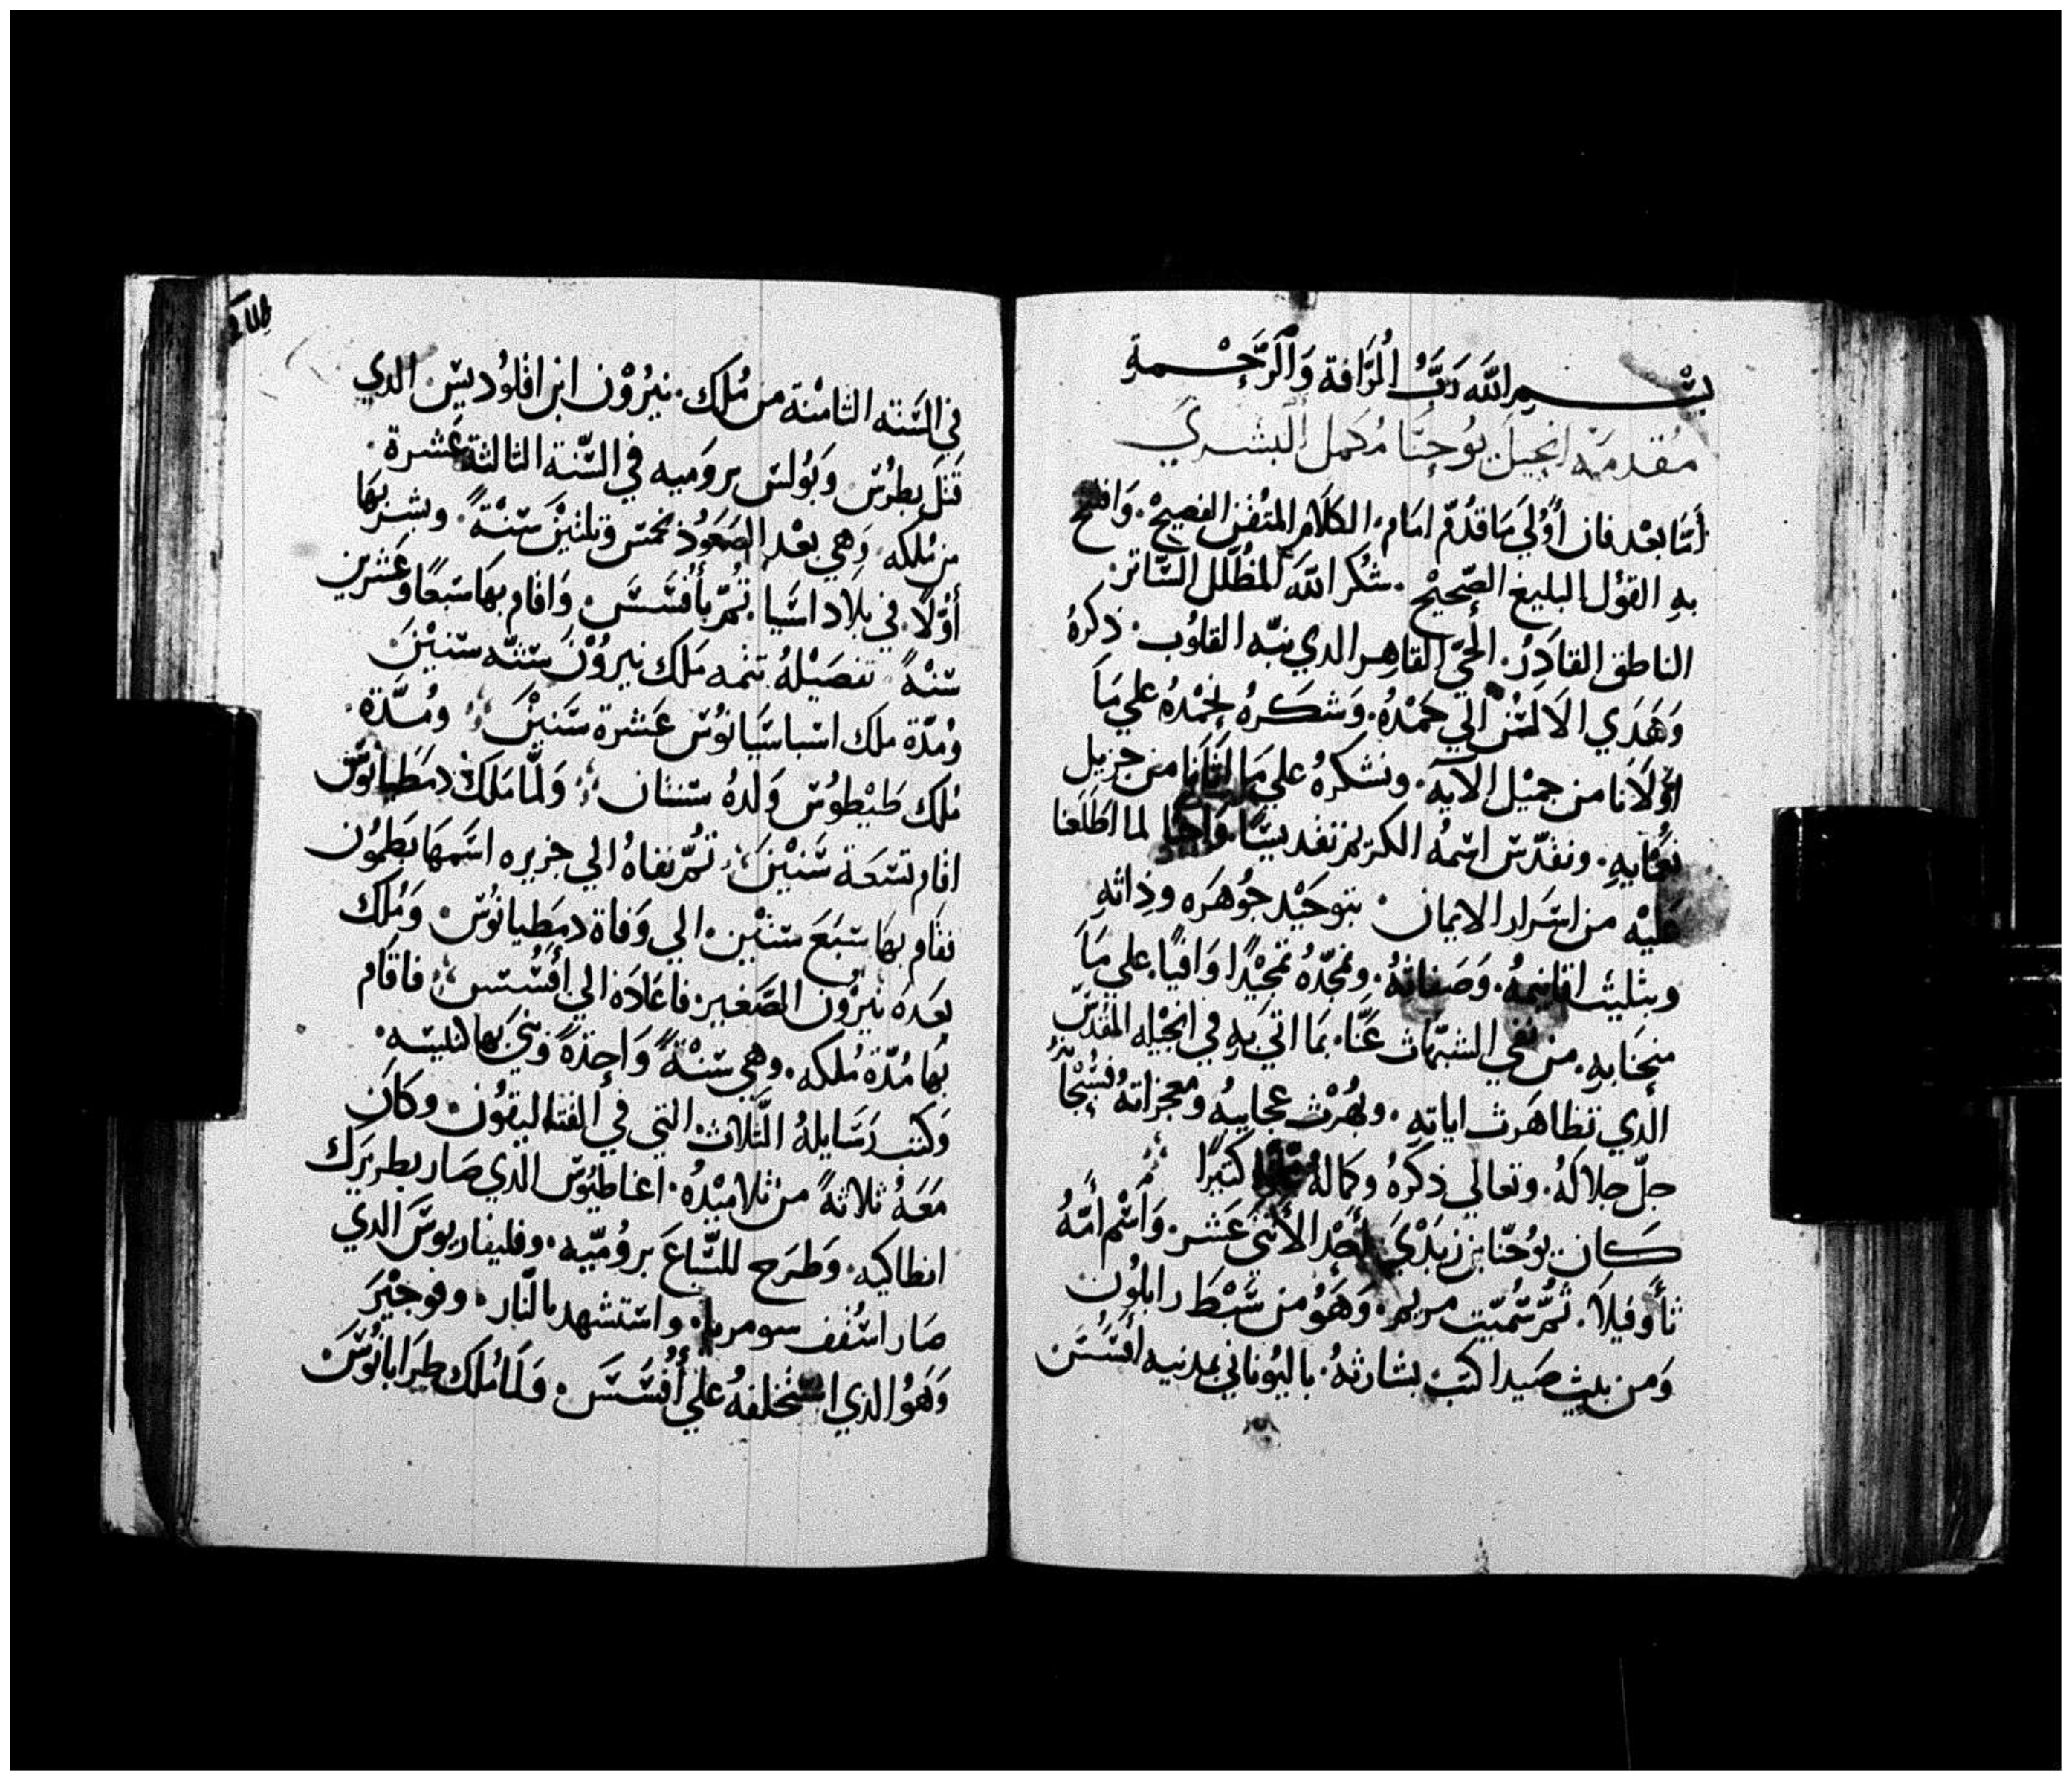 بِسْمِ اللَّه رَبُّ الْرَّافة وَالْرَّحْمةِ
مُقدمَة انجيل يُوحنَّا مُكمل البشري
أمَّا بعْد فان أَوْلي مَا قدُّم امَام الكلَام المتْقن الفصيحْ. وَافتتح
بهِ القوْل البليغ الصَّحيحْ. شكر اللَّه المظلل السَّاتر
الناطق القادِرْ. الحيّ القاهِر الدي نبّه القلوُب. ذكرهُ
وَهَدَي الالسْن الي حَمْدُه. وَشكرهُ نحْمدُه علي مَا
اوْلَانا من جميْل الآيه. ونشكرهُ علي مَا من جزيل
نعمَايهِ. ونقدّس اسْمهُ الكريم تقديسًا وَاجبًا لما اطلَعنا
عَليْه من اسْرَار الايمان. بتوحَيْد جوُهَره وذاتهِ
وبتليث اقانيمهُ. وَصَفاتهُ. ونمجّدُه تمجيْدًا وَافيًا. علي مَا
منحنَا بهِ. من نفي الشبهَات عَنَّا. بمَا اتي بهِ في انجيْله المقدسْ
الدي تظاهَرت اياتهِ. وبهُرْت عجايبهُ ومعجزاتهُ
جلّ جلالهُ. وتعالي ذكرهُ وكمالهُ كتيرًا
كان يوُحنّا بن زبَدْيَ أحَدْ الأتني عَشر. وَاسْم أمّهُ
تأوفيلَا. تمّ سُمّيَت مريم. وَهَوُ من سَبْط رابلوُن
وَمن بيت صَيدا كتبَ بشارتهُ. باليُوناني بمدنيه أفسَسَ
في السَّنته التامنْة من مُلك. نيرُوْن ابن اقلوُديسْ. الدي
قتلَ بطرُسْ وبَوُلسْ بروَميه في السَّنة التالتة عَشرة.
من مُلكه. وَهي بعْد الصَعَوُد بخمس وتلتيْنَ سَنْةً. وبشر بهَا
أوْلًا. في بلَاد اسَيا. تُمّ بأفسَسَ. وَاقام بهَا سَبعًا وعَشرين
سَنْةً تفصَيْلهُ تتمه مَلك نيروُنْ ستّه سَنيْنَ
ومُدّة ملك اسْباسَيَانوُسْ عَشرة سَنيْنَ. ومُدَّة.
مُلك طيْطوُسْ وَلدهُ سَنتان. وَلمَّا مَلكْ دمَطيانوُسْ
اقام تسَعة سَنيْنَ. تُمّ نفاهُ الي جزيره اسَمهَا بَطمُون
فقام بهَا سَبَعَ سَنيْن. الي وَفاة دمطيانوُسْ. وَمُلك
بعَدهَ نيرْون الصَّغير. فاعَادَه الي أفسُسَ. فاقَام
بهَا مُدّة مُلكه. وهي سَنْةً وَاحِدَةً وَبني بهَا كنيسَه.
وَكتب رَسَايلهُ التَّلاتْ التي في القتاليقوُن. وكانَ
مَعَهُ تلاتةً منْ تلاميْدُه. اغناطيوُسْ الدي صَار بطريَرك
انطاكيه. وَطرَح للسَّباعَ بروُميّه. وفليقاربوسَ الدي
صَار اسْقف سومرنا. واسْتشهد بالنَّار. وفوجيْرَ
وَهَوُ الدي اسْتخلفهُ علي أفسَسَ. فَلمَا مُلك طرَابانوُسَ